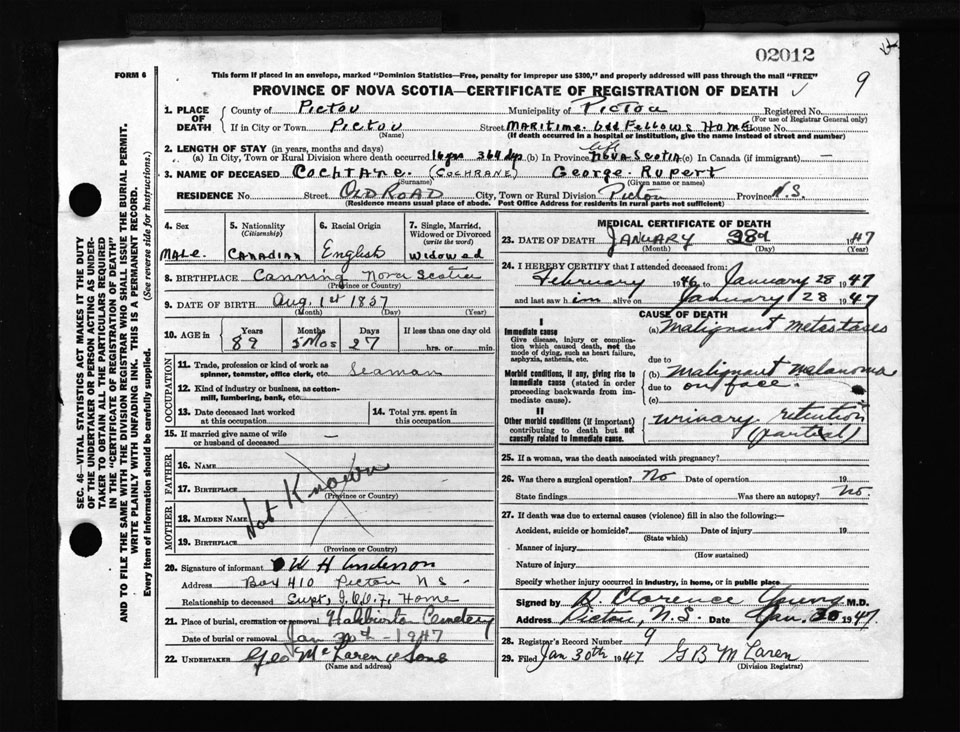 02012
9
FORM 6
This form if placed in an envelope, marked "Dominion Statistics—Free, penalty for improper use $300," and properly addressed will pass through the mail "FREE"
PROVINCE OF NOVA SCOTIA—CERTIFICATE OF REGISTRATION OF DEATH
1. PLACE OF DEATH
County of Pictou Municipality of Pictou Registered No.
(For use of Registrar General only)
If in City or Town Pictou Street Maritime Odd Fellows Home House No.
(Name) (If death occurred in a hospital or institution, give the name instead of street and number)
2. LENGTH OF STAY (in years, months and days)
(a) In City, Town or Rural Division where death occurred 16 yrs 364 dys (b) In Province life Nova Scotia (c) In Canada (if immigrant) —
3. NAME OF DECEASED Cochrane. (COCHRANE) George. Rupert
(Surname) (Given name or names)
RESIDENCE No. Street OLD ROAD City, Town or Rural Division Pictou Province N.S.
(Residence means usual place of abode. Post Office Address for residents in rural parts not sufficient)
4. Sex
Male.
5. Nationality
(Citizenship)
Canadian
6. Racial Origin
English
7. Single, Married, Widowed or Divorced
(write the word)
Widowed
8. BIRTHPLACE Canning Nova Scotia
(Province or Country)
9. DATE OF BIRTH Aug. 1st 1857
(Month) (Day) (Year)
10. AGE in
Years Months Days If less than one day old
89 5 Mos 27 hrs. or min.
OCCUPATION
11. Trade, profession or kind of work as spinner, teamster, office clerk, etc. Seaman
12. Kind of industry or business, as cotton-mill, lumbering, bank, etc.
13. Date deceased last worked at this occupation
14. Total yrs. spent in this occupation
15. If married give name of wife or husband of deceased —
FATHER
16. NAME
17. BIRTHPLACE
(Province or Country)
Not Known
MOTHER
18. MAIDEN NAME
19. BIRTHPLACE
(Province or Country)
20. Signature of informant W H Anderson
Address Box 410 Pictou N S
Relationship to deceased Supt. I.O.O.F. Home
21. Place of burial, cremation or removal Haliburton Cemetery
Date of burial or removal Jan 30th - 1947
22. UNDERTAKER Geo McLaren & Sons
(Name and address)
MEDICAL CERTIFICATE OF DEATH
23. DATE OF DEATH January 28 1947
(Month) (Day) (Year)
24. I HEREBY CERTIFY that I attended deceased from:
February 1946 to January 28 1947
and last saw him alive on January 28 1947
CAUSE OF DEATH
I
Immediate cause
Give disease, injury or complication which caused death, not the mode of dying, such as heart failure, asphyxia, asthenia, etc.
(a) Malignant metastases
due to
Morbid conditions, if any, giving rise to immediate cause (stated in order proceeding backwards from immediate cause).
(b) Malignant melanoma
due to on face.
(c)
II
Other morbid conditions (if important) contributing to death but not causally related to immediate cause.
Urinary retention
(partial)
25. If a woman, was the death associated with pregnancy?
26. Was there a surgical operation? No Date of operation 19
State findings Was there an autopsy? No.
27. If death was due to external causes (violence) fill in also the following:—
Accident, suicide or homicide? Date of injury 19
(State which)
Manner of injury
(How sustained)
Nature of injury
Specify whether injury occurred in industry, in home, or in public place
Signed by D. Clarence Young M.D.
Address Pictou, N.S. Date Jan. 30 1947.
28. Registrar's Record Number 9
29. Filed Jan 30th 1947 G B McLaren
(Division Registrar)
SEC. 46—VITAL STATISTICS ACT MAKES IT THE DUTY
OF THE UNDERTAKER OR PERSON ACTING AS UNDER-
TAKER TO OBTAIN ALL THE PARTICULARS REQUIRED
IN THE "CERTIFICATE OF REGISTRATION OF DEATH"
AND TO FILE THE SAME WITH THE DIVISION REGISTRAR WHO SHALL ISSUE THE BURIAL PERMIT.
WRITE PLAINLY WITH UNFADING INK. THIS IS A PERMANENT RECORD.
Every item of Information should be carefully supplied. (See reverse side for Instructions.)